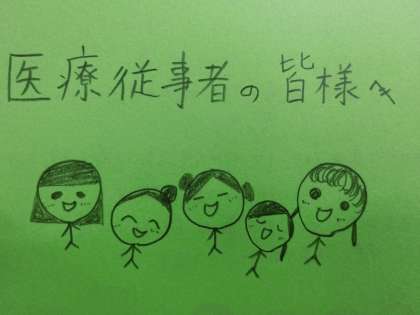 医療従事者の皆様へ